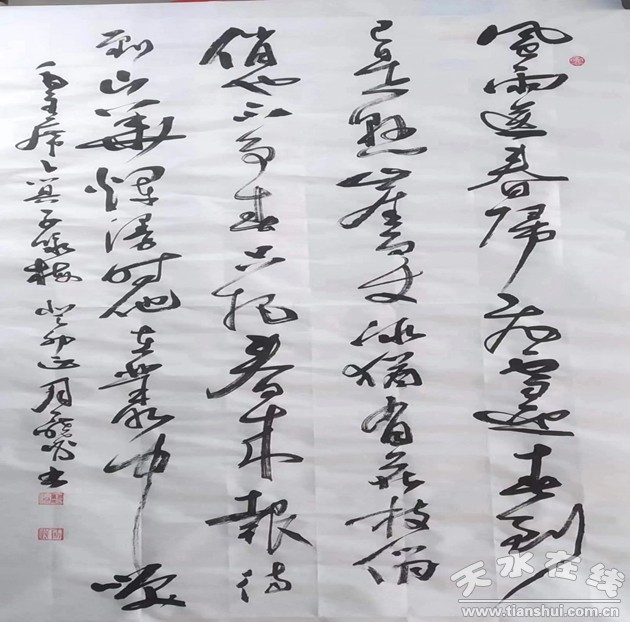 风雨送春归飞雪迎春到
已是悬崖百丈冰犹有花枝俏
俏也不争春只把春来报待
到山花烂漫时她在丛中笑
毛主席卜算子咏梅 癸卯正月 书
天水在线
www.tianshui.com.cn